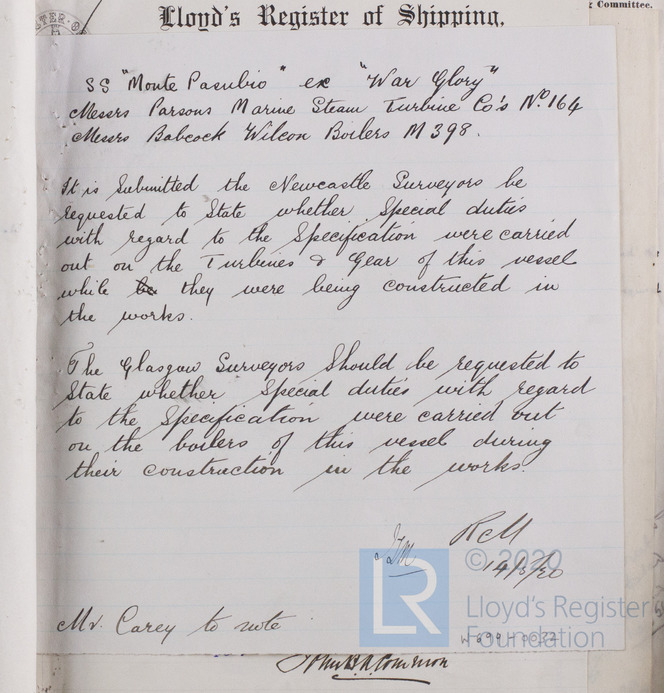 : Committee.
Lloyd's Register of Shipping.
SS "Monte Pasubio" ex "War Glory"
Messrs Parsons Marine Steam Turbine Co's No. 164
Messrs Babcock Wilcox Boilers M 398.
It is submitted the Newcastle Surveyors be
requested to State whether Special duties
with regard to the Specification were carried
out on the Turbines & Gear of this vessel
while be they were being constructed in
the works.
The Glasgow Surveyors should be requested to
State whether Special duties with regard
to the Specification were carried out
on the boilers of this vessel during
their construction in the works.
RCM
14/5/20
© 2020
LR
Lloyd's Register
Foundation
Mr. Carey to note
W699-0032